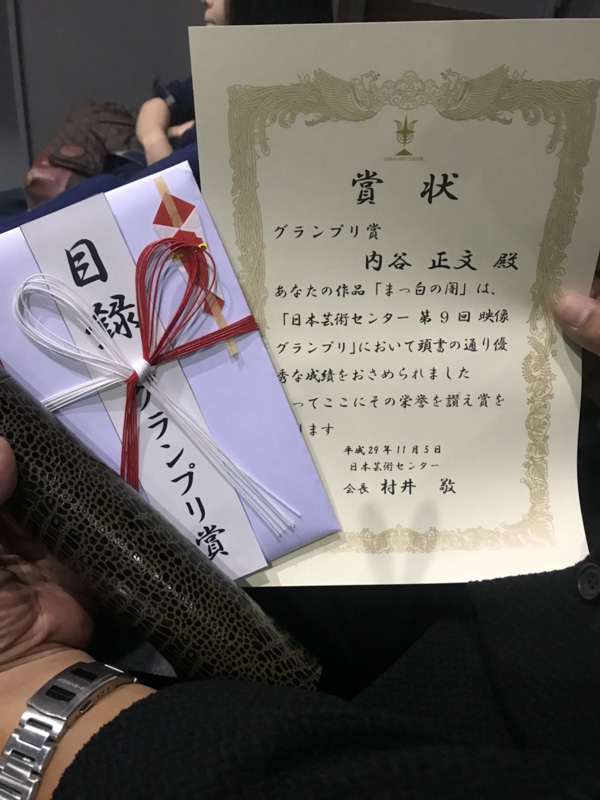 賞状
グランプリ賞
内谷 正文 殿
あなたの作品「まっ白の闇」は、
「日本芸術センター 第9回 映像
グランプリ」において頭書の通り優
秀な成績をおさめられました
ってここにその栄誉を讃え賞を
ます
平成29年11月5日
日本芸術センター
会長 村井 敬
目録
グランプリ賞